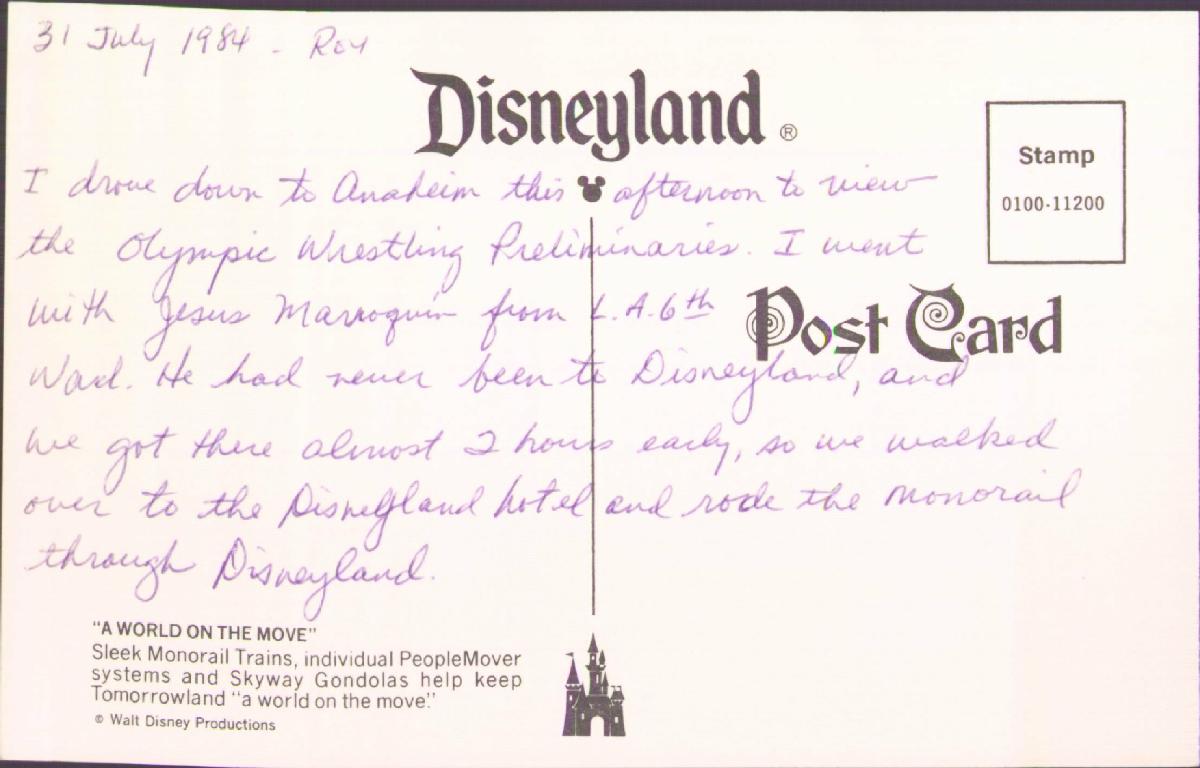 31 July 1984 - Roy
Disneyland ®
Stamp
0100-11200
I drove down to Anaheim this afternoon to view
the Olympic Wrestling Preliminaries. I went
with Jesus Marroquin from L.A. 6th
Post Card
Ward. He had never been to Disneyland, and
we got there almost 2 hours early, so we walked
over to the Disneyland hotel and rode the monorail
through Disneyland.
"A WORLD ON THE MOVE"
Sleek Monorail Trains, individual PeopleMover
systems and Skyway Gondolas help keep
Tomorrowland "a world on the move."
© Walt Disney Productions